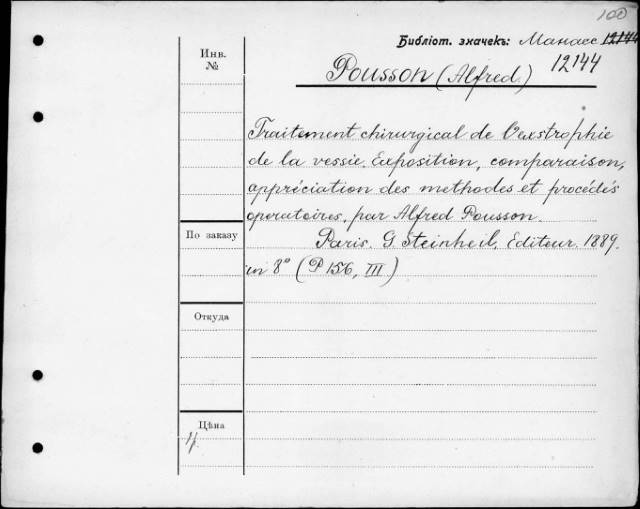 100
Библіот. значекъ: Манасс 12144
12144
Инв. №
Pousson (Alfred.)
Traitement chirurgical de l'exstrophie
de la vessie. Exposition, comparaison,
appréciation des methodes et procédés
operatoires, par Alfred Pousson.
Paris. G. Steinheil, Editeur. 1889.
in 8° (P 156, III)
По заказу
Откуда
Цѣна